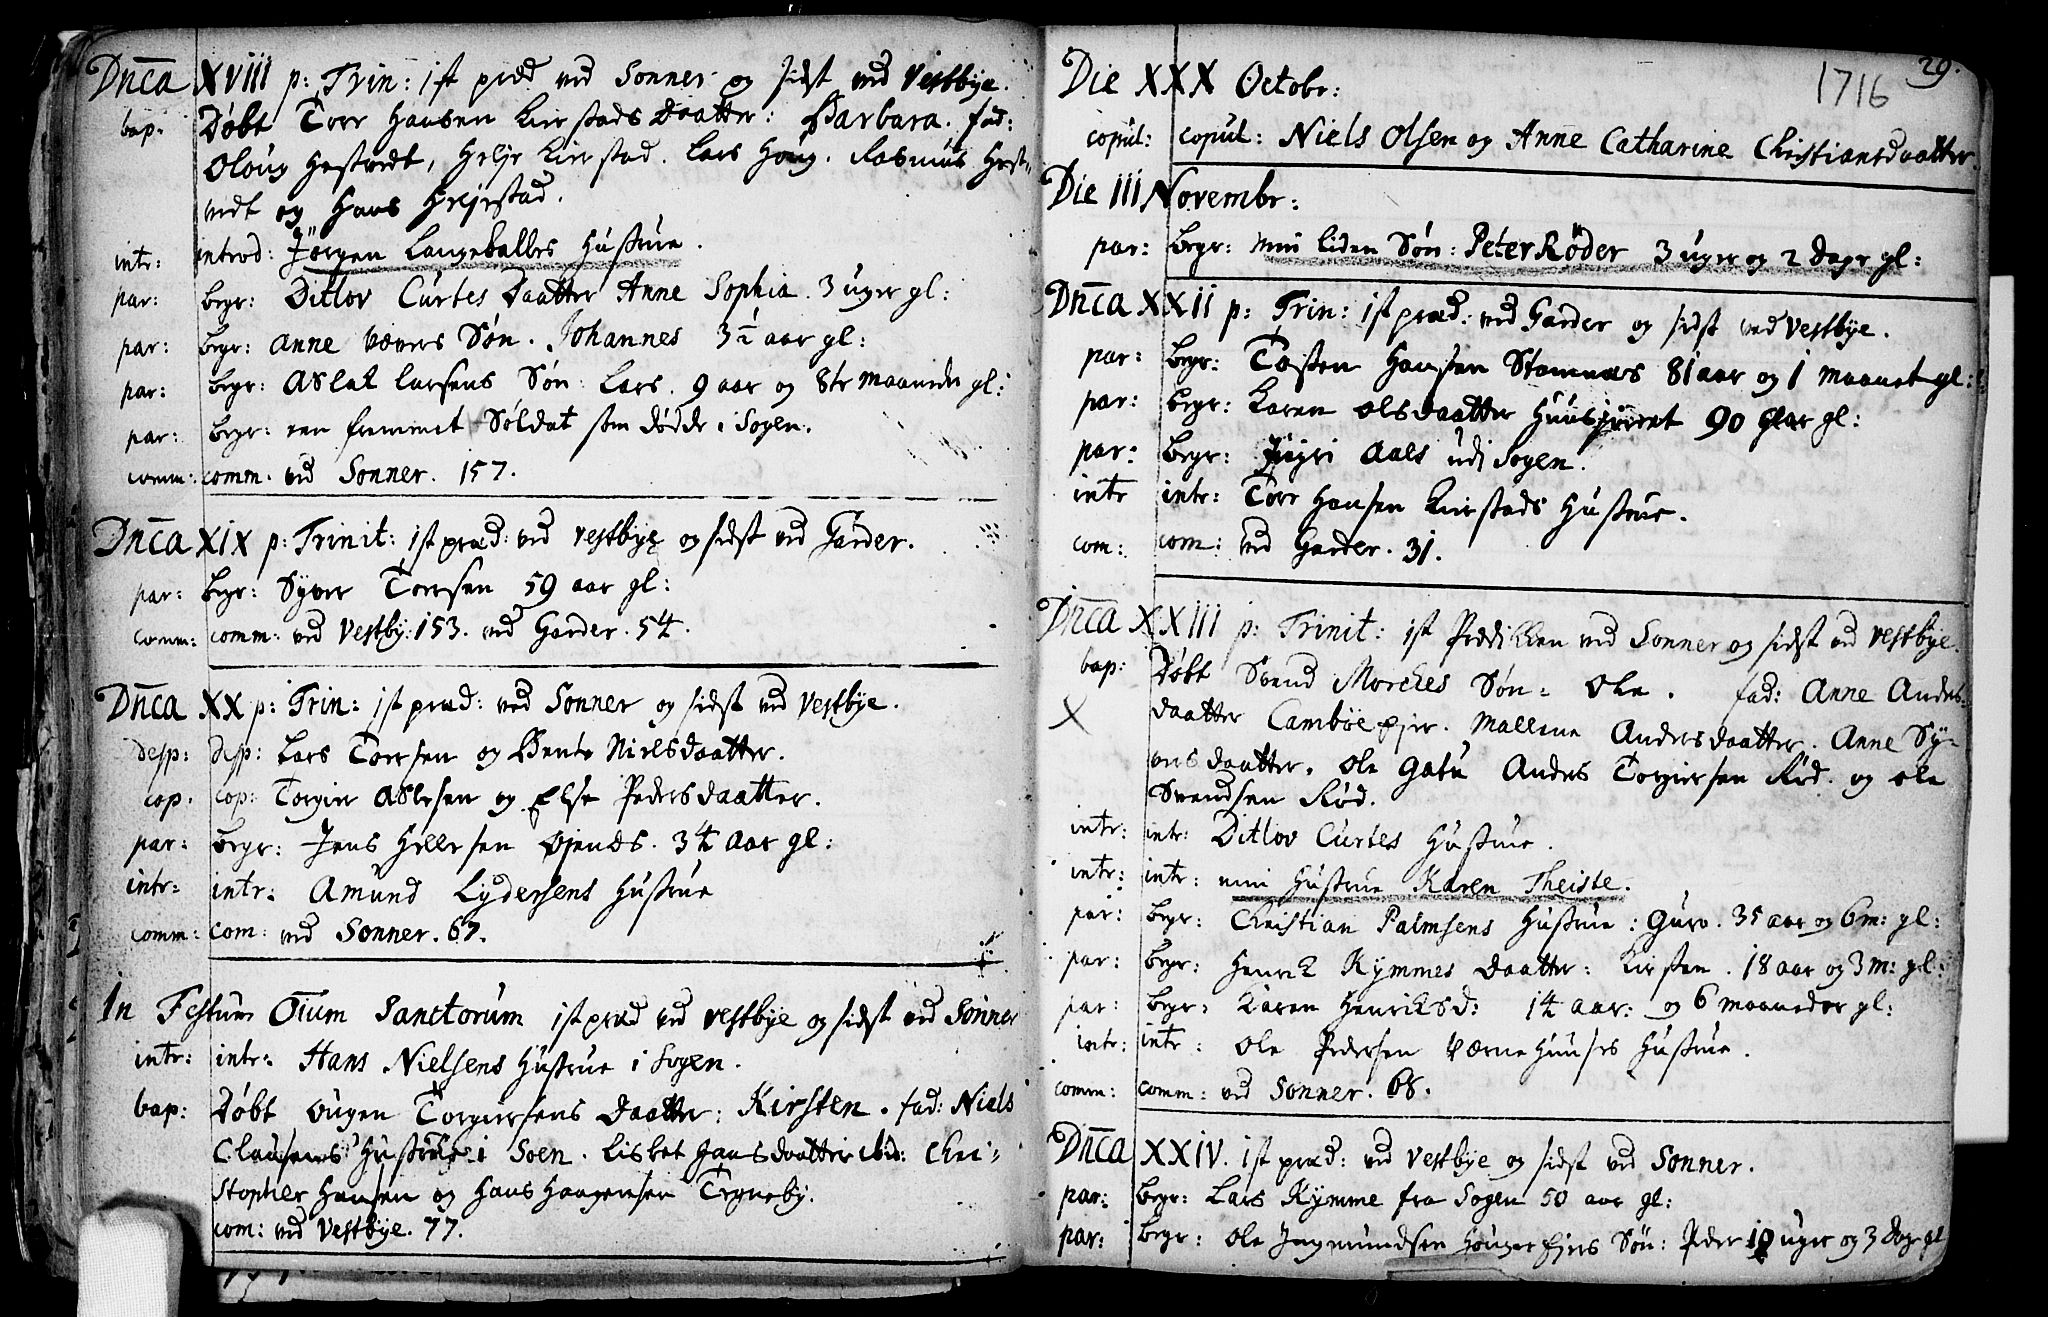 Dnca XVIII p: Trin: ist præd ved Sonner og sidst ved Vestbye.
bap: Døbt Torr Hansen Kirstads Daatter: Barbara. fad:
Oloug Hestvedt, Helje Kirstad. Lars Houg. Rasmus Hest-
vedt og Hans Helgestad.
intr: introd: Jørgen Langeballes Hustrue.
par: begr: Ditlov Curtes Daatter Anne Sophia. 3 uger gl:
par: begr: Anne Vævers Søn. Johannes 3½ aar gl:
par: begr: Aslak Larsens Søn: Lars. 9 aar og 8te maaneder gl:
par: begr: een fremmet Soldat som døde i Sogen.
comm: comm: ved Sonner. 157.
Dnca XIX p: Trinit: ist præd: ved Vestbye og sidst ved Garder.
par: begr: Syver Torrsen 59 aar gl:
comm: comm: ved Vestby: 153. ved Garder. 54.
Dnca XX p: Trin: ist præd: ved Sonner og sidst ved Vestbye.
desp: desp: Lars Torrsen og Bente Nielsdaatter.
cop: cop: Torgier Aslesen og Else Pedersdaatter.
par: begr: Jens Hellesen 34 aar gl:
intr: intr: Amund Lydersens Hustrue
comm: com: ved Sonner. 67.
In Festum Oium Sanctorum ist præd ved Vestbye og sidst ved Sonner
intr: intr: Hans Nielsens Hustrue i Sogen.
bap: Døbt Torgiersens Daatter: Kirsten. fad: Niels
Clausens Hustrue i Soen. Lisbet Hansdaatter ibid: Chri-
stopher Hansen og Hans Haagensen Tegneby.
com: ved Vestbye. 77.
1716 29.
Die XXX Octobr:
copul: copul: Niels Olsen og Anne Catharine Christiansdaatter
Die III Novembr:
par: begr: min liden Søn: Peter Röder 3 uger og 2 dage gl:
Dnca XXII p: Trin: ist præd: ved Garder og sidst ved Vestbye.
par: begr: Tosten Hansen Stamnæs 81 aar og 1 maanet gl:
par: begr: Karen Olsdaatter 90 aar gl:
par: begr: Aals udi Sogen.
intr intr: Torr Hansen Kirstads Hustrue.
com: com: ved Garder. 31.
Dnca XXIII p: Trinit: ist Prædicken ved Sonner og sidst ved Vestbye.
bap: Døbt Svend Morches Søn: Ole. fad: Anne Anders-
X daatter Cambøe ejer. Mallene Andersdaatter. Anne Sy-
versdaatter. Ole Gatu Anders Torgiersen Rød. og Ole
Svendsen Rød.
intr: intr: Ditlov Curtes Hustrue.
intr: intr: min Hustrue Karen Theiste.
par: begr: Christian Palmsens Hustrue: Guro. 35 aar og 6 m: gl:
par: begr: Henrik Kymmes Daatter: Kirsten. 18 aar og 3 m: gl:
par: begr: Karen Henriksd: 14 aar: og 6 maaneder gl:
intr: intr: Ole Pedersen Værne Huuses Hustrue.
comm: comm: ved Sonner. 68.
Dnca XXIV. ist præd: ved Vestbye og sidst ved Sonner.
par: begr: Lars Kymme fra Sogen 50 aar gl:
par: begr: Ole Ingmundsen Søn: Peder uger og 3 dage gl